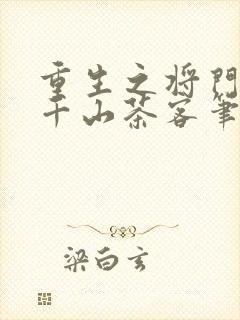 重生之将门
千山茶客笔
梁白玄